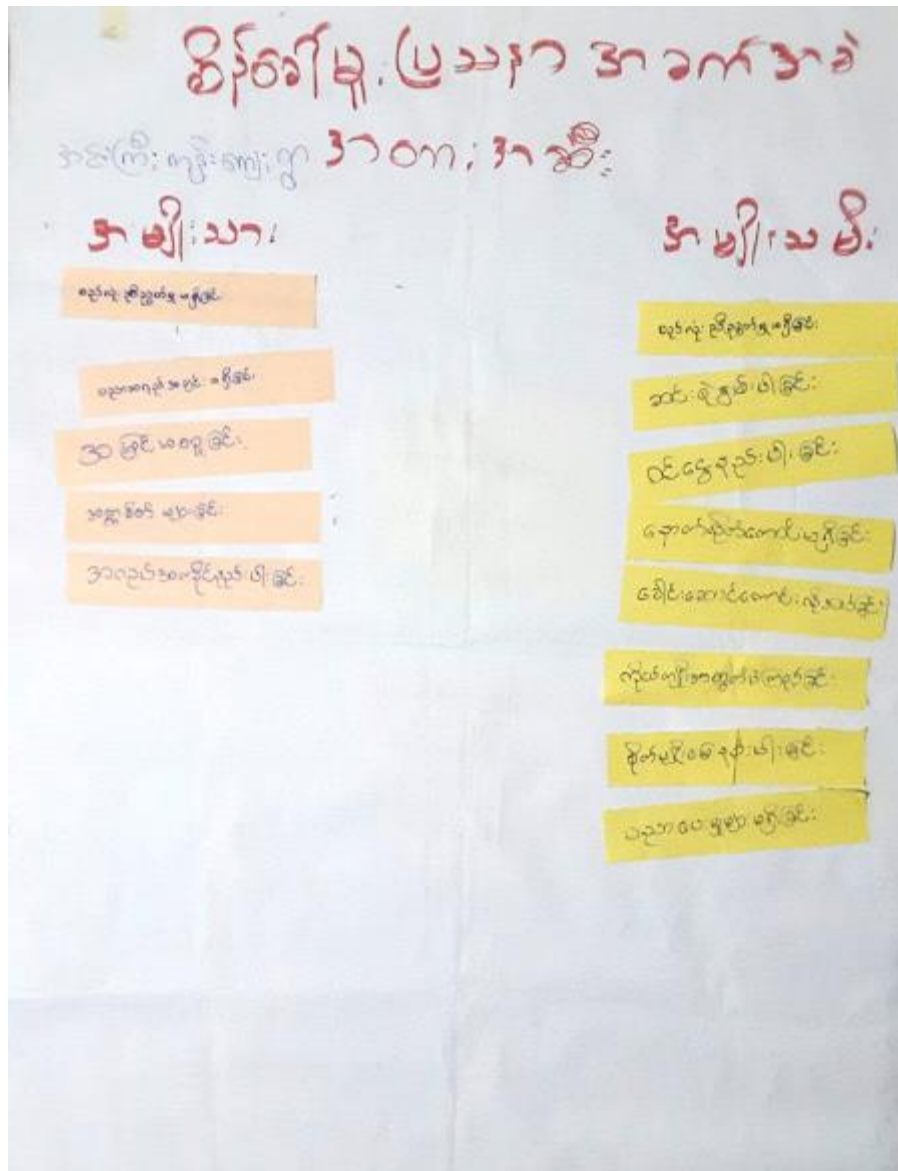 စိန်ခေါ်မှု့ ပြသနာ အခက်အခဲ
အင်းကြီး ကျွန်းကျေးရွာ အတား အဆီး
အမျိုးသား
စည်းလုံး ညီညွတ်မှု မရှိခြင်း
ပညာအရည်အချင်း မရှိခြင်း
အမြင်မကျယ်ခြင်း
အတ္တစိတ် များခြင်း
အမျိုးသမီး
စည်းလုံး ညီညွတ်မှု မရှိခြင်း
ဆင်းရဲနွမ်းပါးခြင်း
ဝင်ငွေနည်းပါးခြင်း
နောက်လိုက်ကောင်းမရှိခြင်း
ခေါင်းဆောင်ကောင်းလိုအပ်ခြင်း
ကိုယ်ကျိုးအတွက်ပဲကြည့်ခြင်း
စိုက်ပျိုးမြေနည်းပါးခြင်း
ပညာပေးမှုများ မရှိခြင်း